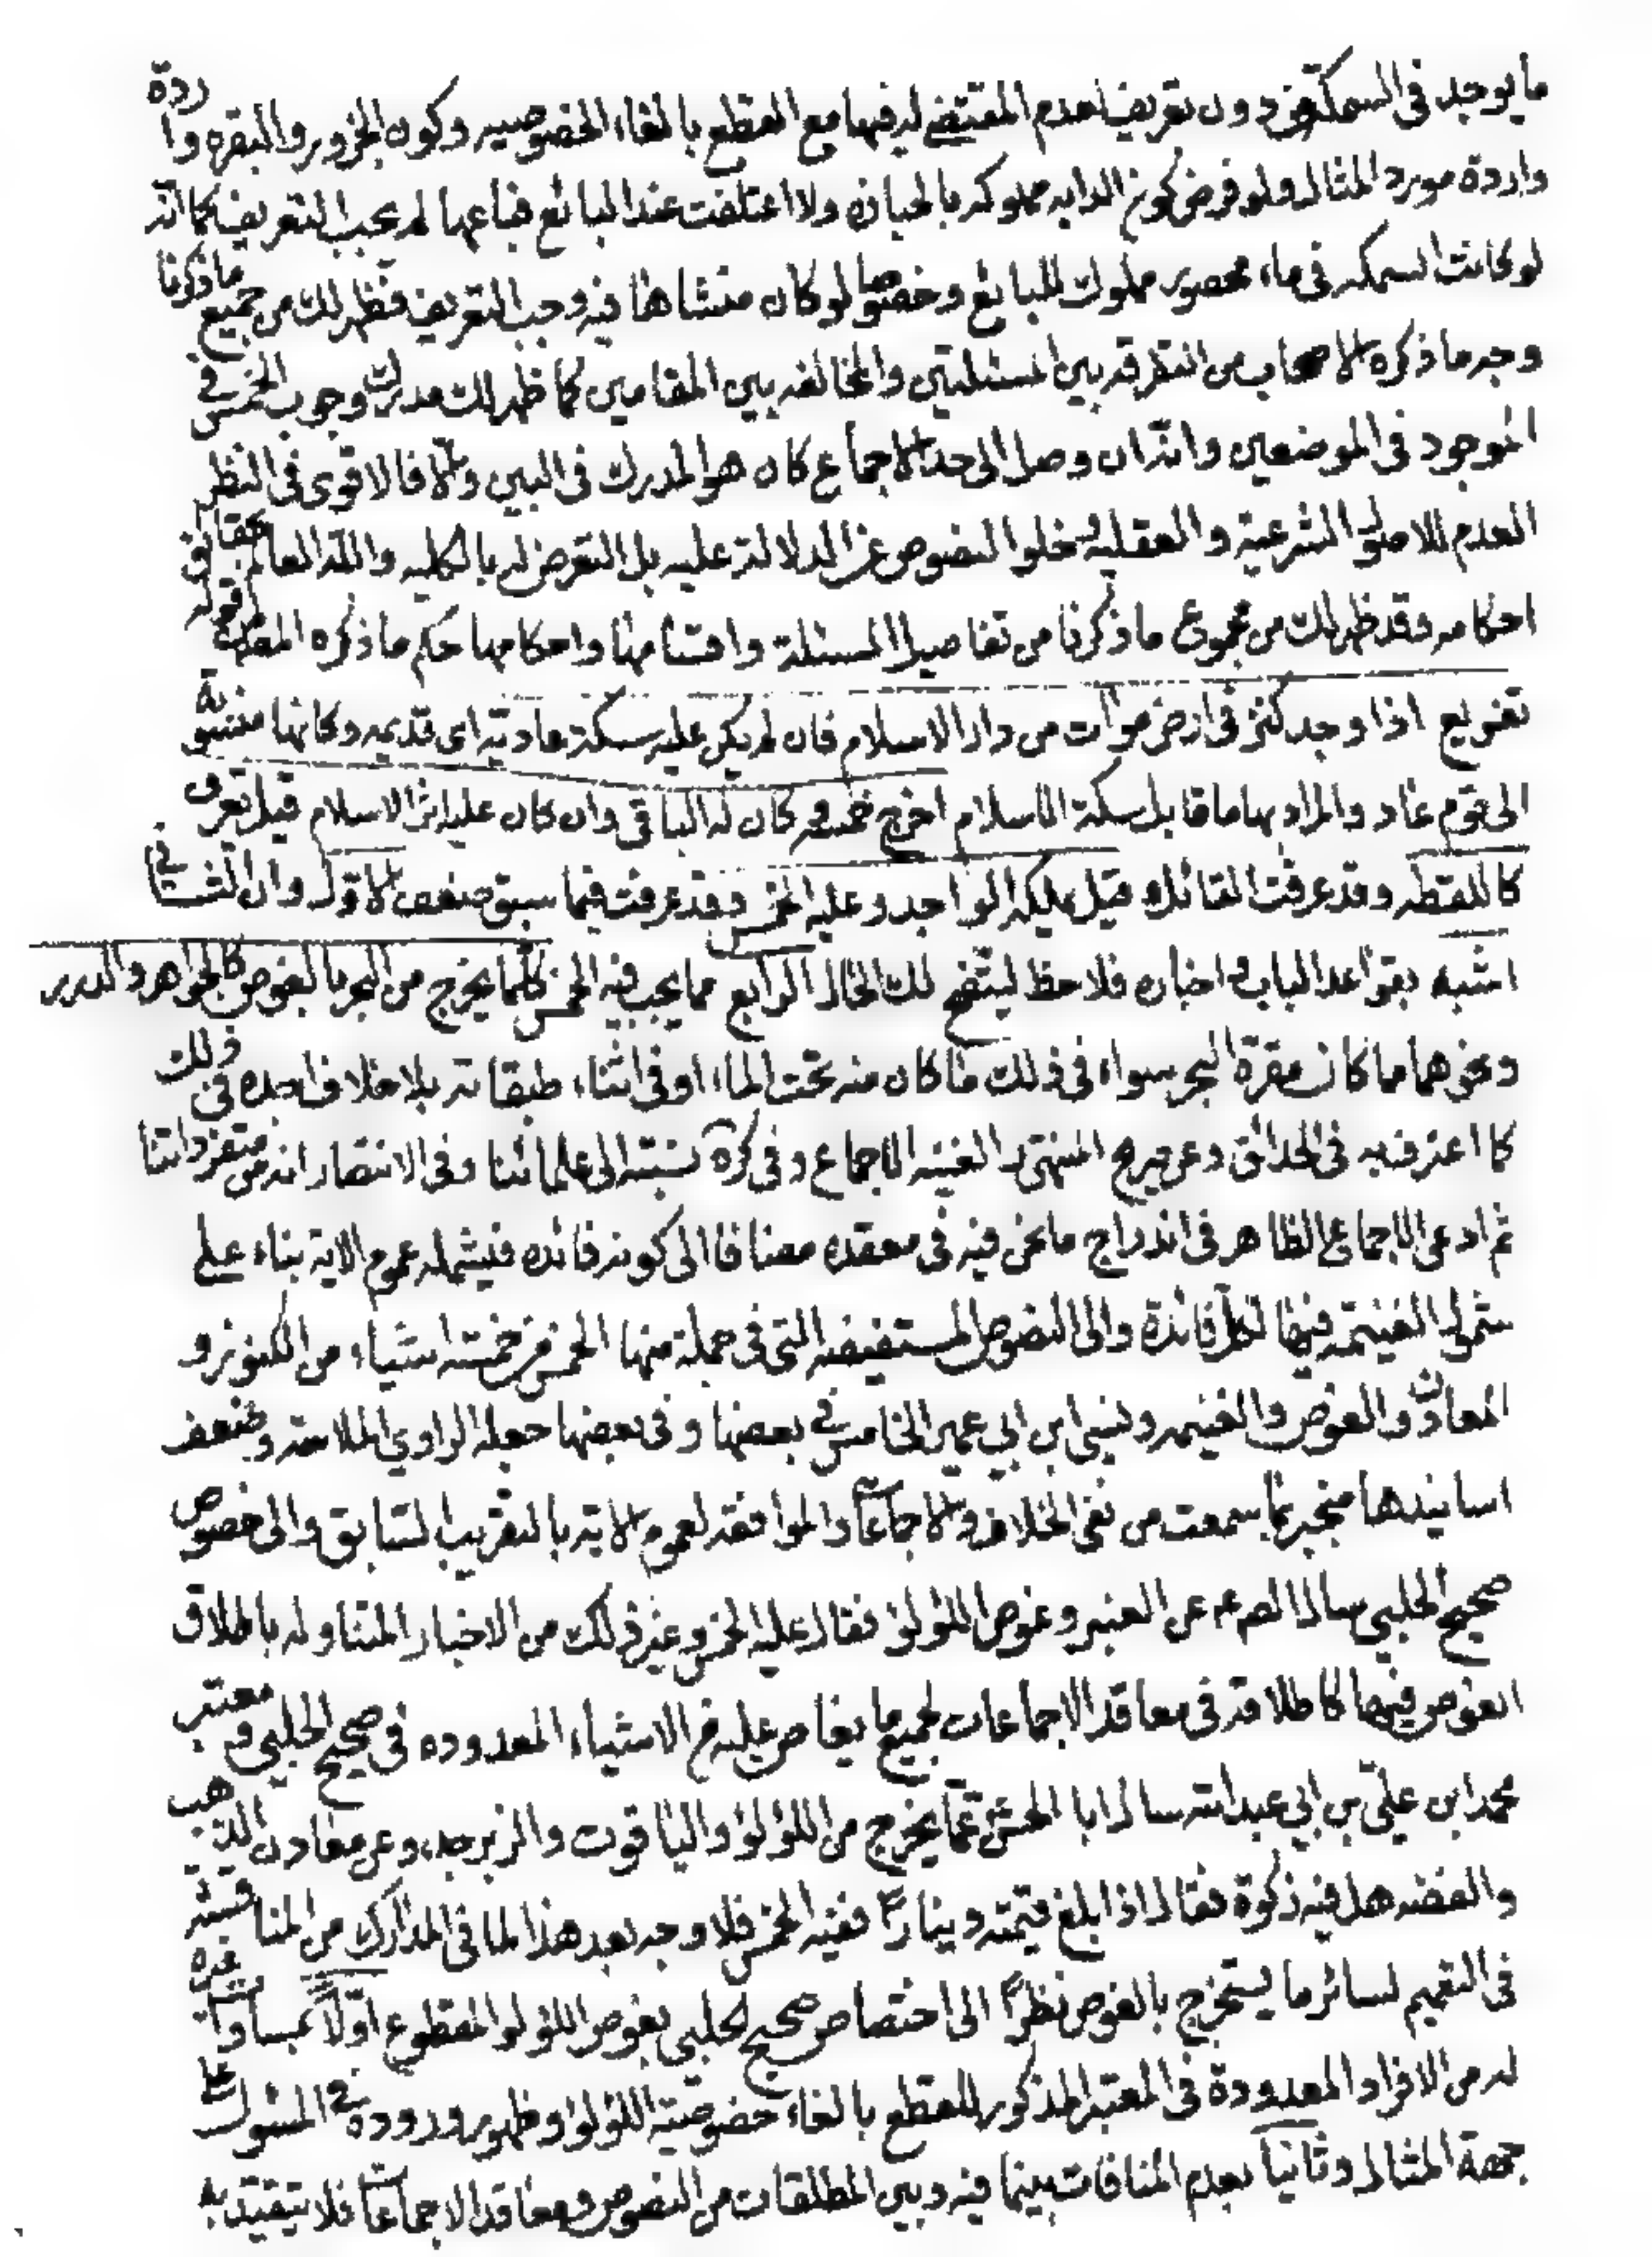 ما يوجد فى السمكة من دون تعريف لعدم المقتضى له فيها مع القطع بالغاء الخصوصيه وكون الجزور والبقره وا ردة
واردة مورد المثال ولو فرض كون الدابه مملوكه بالحيازه ولا اعتلفت عند البائع فباعها لم يجب التعريف كما انه
لو كانت السمكه فى ماء محصور مملوك للبايع وخصوصا لو كان منشاها فيه وجب التعريف فظهر لك من جميع ما ذكرنا
وجه ما ذكره الاصحاب من التفرقه بين المسئلتين والمخالفه بين المقامين كما ظهر لك مدرك وجوب الخمس فى
الموجود فى الموضعين وانه ان وصل الى حد الاجماع كان هو المدرك فى البين والا فالاقوى فى النظر
العدم للاصول الشرعية والعقليه لخلوا النصوص عن الدلالة عليه بل التعرض له بالكليه والله العالم بحقائق
احكامه وقد ظهر لك من مجموع ما ذكرنا من تفاصيل المسئلة واقسامها واحكامها حكم ما ذكره المصنف بقوله
تفريع اذا وجد كنز فى ارض موات من دار الاسلام فان لم يكن عليه سكة عادية اى قديمه وكانها منسوبة
الى قوم عاد والمراد بها ما قابل سكة الاسلام اخرج خمسه وكان له الباقى وان كان عليه اثر الاسلام قيل يعرف
كاللقطه وقد عرفت القائل وقيل يملكه الواجد وعليه الخمس وقد عرفت فيما سبق ضعف الاول وان الثانى
اشبه بقواعد الباب واخباره فلاحظ ليتضح لك الحال الرابع مما يجب فيه الخمس كلما يخرج من البحر بالغوص كالجواهر والدرر
ونحوهما مما كان مقره البحر سواء فى ذلك ما كان منه تحت الماء او فى اثناء طبقاته بلا خلاف اجده فى ذلك
كما اعترف به فى الحدائق وعن صريح المنتهى والغنيه الاجماع وفى كره نسبته الى علمائنا وفى الانتصار انه من متفرداتنا
ثم ادعى الاجماع الظاهر فى اندراج ما نحن فيه فى معقده مضافا الى كونه فائده فيشمله عموم الاية بناء على
شمول الغنيمة فيها لكل فائدة والى النصوص المستفيضه التى فى جملة منها الخمس من خمسة اشياء من الكنوز و
المعادن والغوص والغنيمه ونسى ابن ابي عمير الخامس فى بعضها وفى بعضها جعله الراوي الملاحة وضعف
اسانيدها منجبر بما سمعت من نفى الخلاف والاجماعات والموافقه لعموم الاية بالتقريب السابق والى خصوص
صحيح الحلبي سال الصم عن العنبر وغوص اللؤلؤ فقال عليه الخمس وغير ذلك من الاخبار المتناوله باطلاق
الغوص فيها كاطلاقه فى معاقد الاجماعات لجميع ما يغاص عليه من الاشياء المعدوده فى صحيح الحلبي ومعتبر
محمد ابن علي بن ابي عبد الله سال ابا الحسن ع عما يخرج من اللؤلؤ والياقوت والزبرجد وعن معادن الذهب
والفضه هل فيه زكوة فقال اذا بلغ قيمته دينارا ففيه الخمس فلا وجه بعد هذا لما فى المدارك من المناقشة
فى التعميم لسائر ما يستخرج بالغوص نظرا الى اختصاص صحيح الحلبي بغوص اللؤلؤ المقطوع اولا بمساواة غيره
له من الافراد المعدودة فى المعتبر المذكور للقطع بالغاء خصوصية اللؤلؤ وظهور وروده فى المسئول على
جهة المثال وثانيا بعدم المنافات بينما فيه وبين المطلقات من النصوص ومعاقد الاجماعات فلا يتقيد به